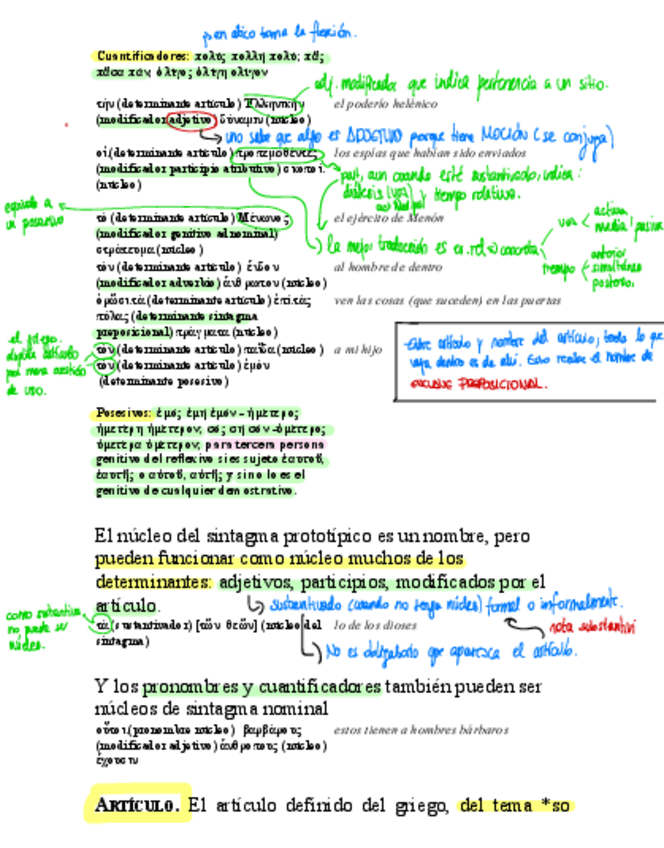 en ático toma la flexión.
Cuantificadores: πολύς πολλή πολύ; πᾶς
πᾶσα πᾶν; ὀλίγος ὀλίγη ὀλίγον
adj. modificador que indica pertenencia a un sitio.
τὴν (determinante artículo) Ἑλληνικὴν el poderío helénico
(modificador adjetivo) δύναμιν (núcleo)
uno sabe que algo es ADJETIVO porque tiene MOCIÓN (se conjuga)
οἱ (determinante artículo) προπεμφθέντες los espías que habían sido enviados
(modificador participio atributivo) σκοποί
(núcleo)
part, aun cuando esté sustantivado, indica:
diátesis (voz) y tiempo relativo.
equivale a
un posesivo
τὸ (determinante artículo) Μένωνος el ejército de Menón
(modificador genitivo adnominal)
στράτευμα (núcleo)
la mejor traducción es or. rel + concreta
voz activa
media / pasiva
tiempo anterior
simultáneo
posterior.
τὸν (determinante artículo) ἔνδον al hombre de dentro
(modificador adverbio) ἄνθρωπον (núcleo)
ὁρῶσι τὰ (determinante artículo) ἐπὶ τὰς ven las cosas (que suceden) en las puertas
πύλας (determinante sintagma
preposicional) πράγματα (núcleo)
el griego
duplica artículo
por mera cuestión
de uso.
τὸν (determinante artículo) παῖδα (núcleo) a mi hijo
τὸν (determinante artículo) ἐμόν
(determinante posesivo)
Entre artículo y nombre del artículo, todo lo que
vaya dentro es de ahí. Esto recibe el nombre de
ENCLAVE PREPOSICIONAL.
Posesivos: ἐμός ἐμή ἐμόν - ἡμέτερος
ἡμετέρη ἡμέτερον; σός σή σόν - ὑμέτερος
ὑμετέρα ὑμέτερον; para tercera persona
genitivo del reflexivo si es sujeto ἑαυτοῦ,
ἑαυτῆς o αὑτοῦ, αὑτῆς; y si no lo es el
genitivo de cualquier demostrativo.
El núcleo del sintagma prototípico es un nombre, pero
pueden funcionar como núcleo muchos de los
determinantes: adjetivos, participios, modificados por el
artículo.
sustantivado (cuando no tenga núcleo) formal o informalmente.
nota substantivi
como sustantiva,
no puede ser
núcleo.
τὰ (sustantivador) [τῶν θεῶν] (núcleo del lo de los dioses
sintagma)
No es obligatorio que aparezca el artículo.
Y los pronombres y cuantificadores también pueden ser
núcleos de sintagma nominal
οὗτοι (pronombre núcleo) βαρβάρους estos tienen a hombres bárbaros
(modificador adjetivo) ἀνθρώπους (núcleo)
ἔχουσιν
ARTÍCULO. El artículo definido del griego, del tema *so